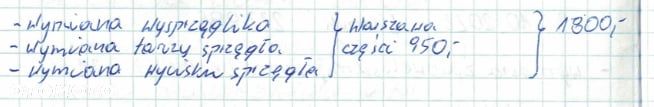 - Wymiana wysprzęglika } Warszawa } 1800,-
- Wymiana tarczy sprzęgła } części 950,-
- Wymiana wycisku sprzęgła